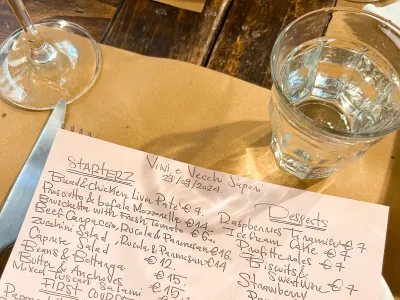 Vini e Vecchi Sapori
23/09/2024.
STARTERZ
Bread & Chicken Liver Pate' € 7.
Proscutto & bufala Mozzarella €14.
Bruschetta with Fresh Tomato € 6..
Beef Carpaccio, Rucola & Parmesan €16.
Zucchini Salad, Rucola & Parmesan €14
Caprese Salad € 12.
Beans & Bottarga € 15.
Butter & Anchovies € 15.
Mixed Tuscan Salami
FIRST COURSE
Desserts
Raspberries Tiramisu € 7
Ice Cream Cake € 7
Profitteroles € 7
Biscuits &
Sweet Wine € 7
Strawberry